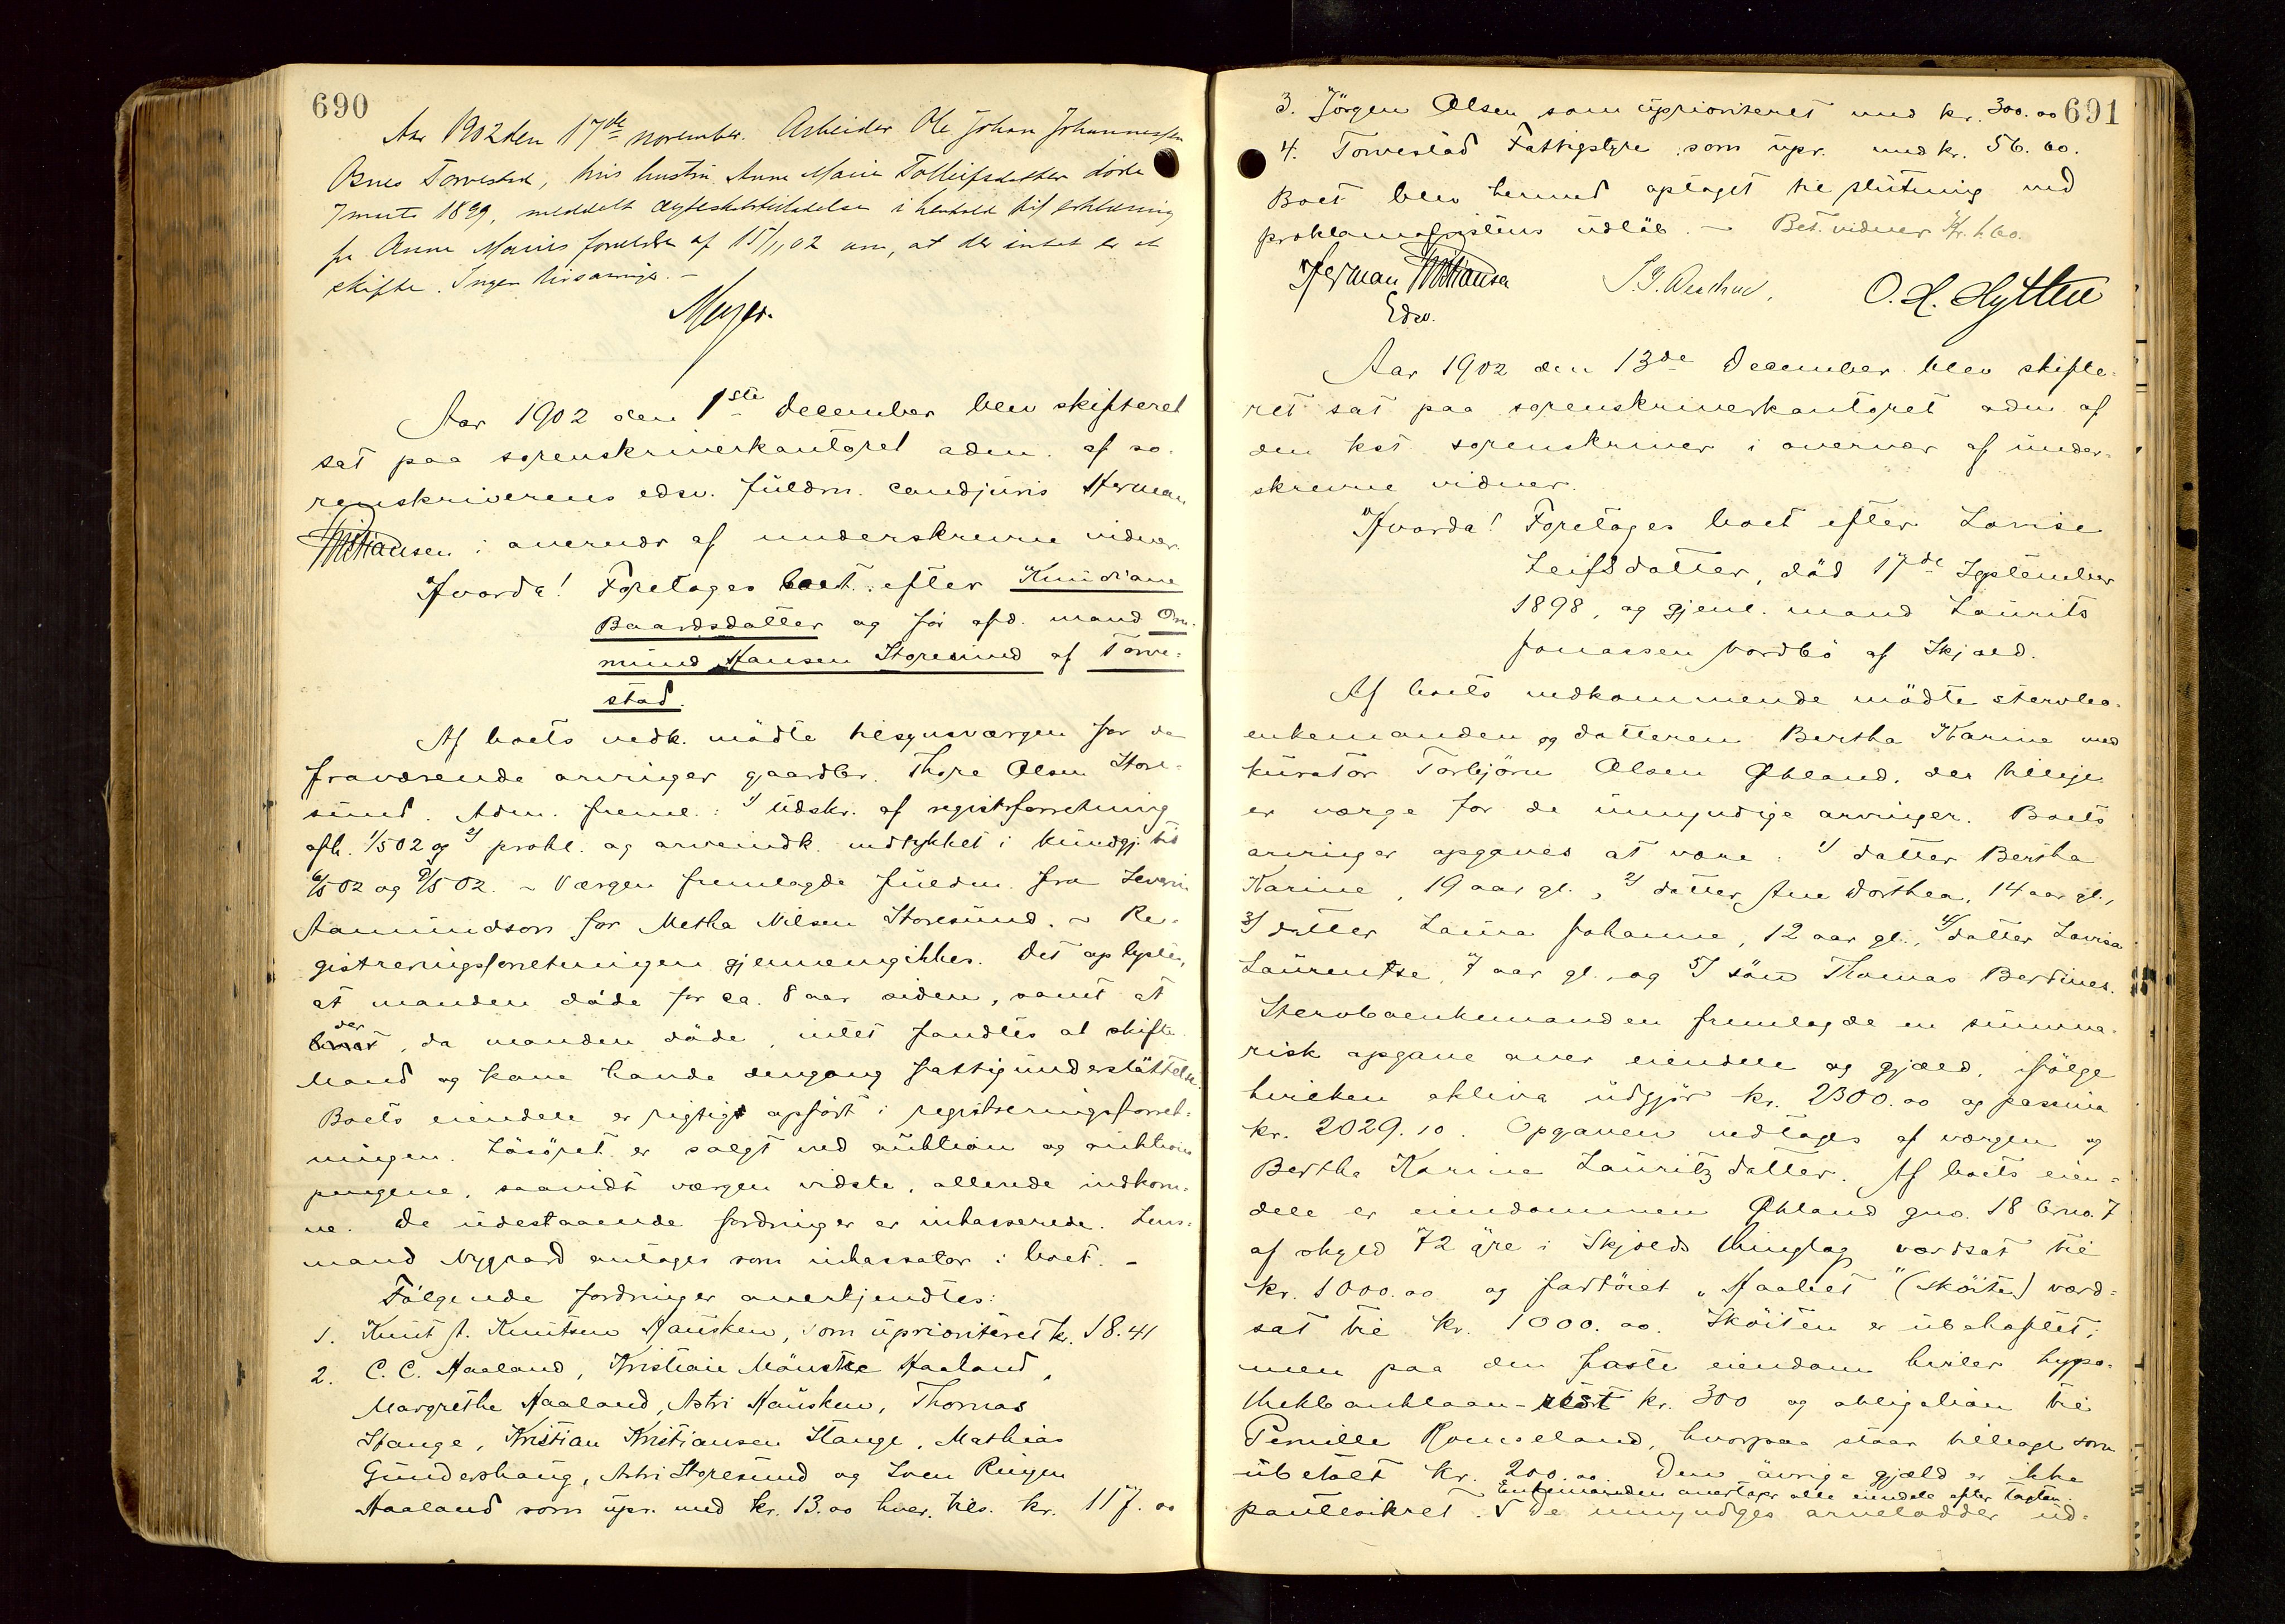 690
Aar 1902 den 17de november. Arbeider Ole Johan Johannessen
Osnes Torvestad, hvis hustru Anne Marie Tolleifsdatter döde
7 marts 1899, meddelt ægteskabstilladelse i henhold til erklæring
fra Anne Maries forældre af 15/11 02 om, at der intet er at
skifte. Ingen livsarvinger. –
Meyer.
Aar 1902 den 1ste december blev skifteret
sat paa sorenskriverkontoret adm. af so-
renskriverens edsv. fuldm. cand juris Herman
Kristiansen i overvær af underskrevne vidner.
Hvorda! Foretoges boet efter Knudiane
Baardsdatter og før afd. mand Om-
mund Hansen Storesund af Torve-
stad.
Af boets vedk. mödte tilsynsværgen for de
fraværende arvinger gaardbr. Thore Olsen Store-
sund. Adm. freml.: 1/ udskr. af registrforretning
afh. 1/5 02 og 2/ prokl. og arveindk. indrykket i kundgj. tid
6/5 02 og 9/5 02. ~ Værgen fremlagde fuldm. fra Severin
Aamundson for Metha Nilsen Storesund. ~ Re-
gistreringsforretningen gjennemgikkes. Det oplystes,
at manden döde for ca. 8 aar siden, samt at
der, da manden döde, intet fandtes at skifte.
Mand og kone havde dengang fattigunderstöttelse.
Boets eiendele er rigtigt opfört i registreringsforret-
ningen. Lösöret er solgt ved auktion og auktions
pengene, saavidt værgen vidste, allerede indkom-
ne. De udestaaende fordringer er inkasserede. Lens-
mand Nygaard antages som inkassator i boet. –
Fölgende fordringer anerkjendtes:
1. Knut A. Knutsen Hausken, som uprioriteret kr. 18.41
2. C. C. Haaland, Kristian Mänstre Haaland,
Margrethe Haaland, Astri Hausken, Thomas
Stange, Kristian Kristiansen Stange, Mathias
Gundershaug, Astri Storesund og Sven Ringen
Haaland som upr. med kr. 13.00 hver, tils. kr. 117.00
691
3. Jörgen Olsen som uprioriteret med kr. 300.00
4. Torvestad Fattigstyre som upr. med kr. 56.60.
Boet blev hermed optaget til slutning ved
proklamafristens udlöb. ~ Bet. vidner Kr. 1.60.
Herman Kristiansen
Edsv.
O. H. Hytten
Aar 1902 den 13de December blev skifte-
ret sat paa sorenskriverkontoret adm af
den kst sorenskriver i overvær af under-
skrevne vidner.
Hvorda! Foretoges boet efter Lovise
Leifsdatter, död 17de September
1898, og gjenl. mand Laurits
Jonassen Nordbö af Skjold.
Af boets vedkommende mödte stervbo-
enkemanden og datteren Bertha Karine med
kurator Torbjörn Olsen Økland, der tillige
er værge for de umyndige arvinger. Boets
arvinger opgaves at være: 1/ datter Bertha
Karine, 19 aar gl., 2/ datter Ane Dorthea, 14 aar gl.,
3/ datter Laura Johanne, 12 aar gl., 4/ datter Lovisa
Laurentse, 7 aar gl., og 5/ sön Thomas Bertines.
Stervboenkemanden fremlagde en summa-
risk opgave over eiendele og gjæld, ifölge
hvilken aktiva udgjör kr. 2300.00 og passiva
kr. 2029.10. Opgaven vedtoges af værgen og
Bertha Karine Lauritzdatter. Af boets eien-
dele er eiendommen Økland gno. 18 brno. 7
af skyld 72 øre i Skjolds thinglag værdsat til
kr. 1000.00 og fartöiet „Haabet" (sköite) værd-
sat til kr. 1000.00. Sköiten er ubeheftet;
men paa den faste eiendom hviler hypo-
thekbanklaan-rest kr. 300 og obligation til
Pernille Romseland, hvorpaa staar tilbage som
ubetalt kr. 200.00. Den övrige gjæld er ikke
Enkemanden overtager alle eiendele efter taxten.
pantesikret. De umyndiges arvelodder ud-